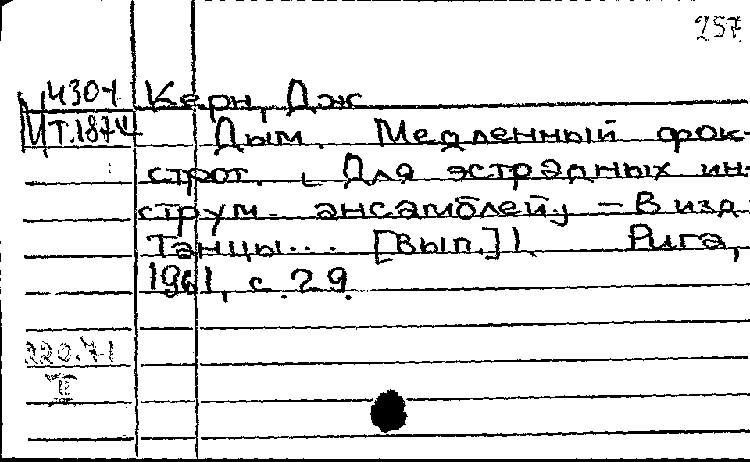 257
Ч30-1 Керн, Дж
М Т.1874 Дым. Медленный фок-
строт. [Для эстрадных ин-
струм. ансамблей] – В изд.
Танцы... [Вып.] 1. Рига,
1961, с. 29.
220.71
II